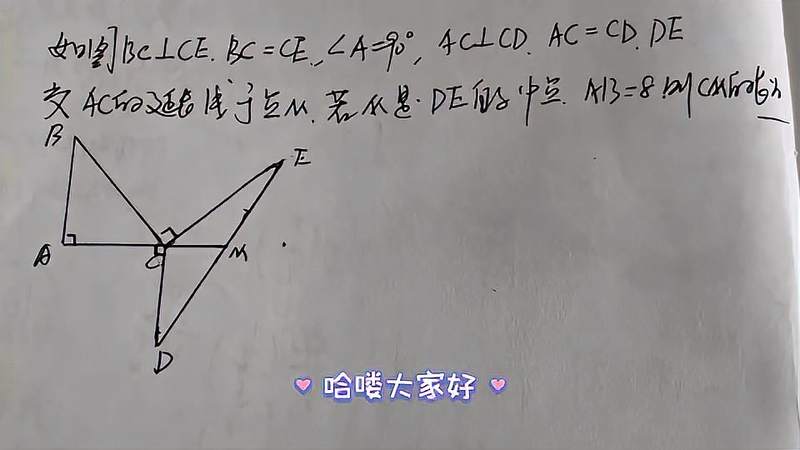 如图BC⊥CE. BC=CE. ∠A=90°, AC⊥CD. AC=CD. DE
交AC的延长线于点M. 若M是DE的中点. AB=8 则CM的长为
B
E
A
C
M
D
哈喽大家好